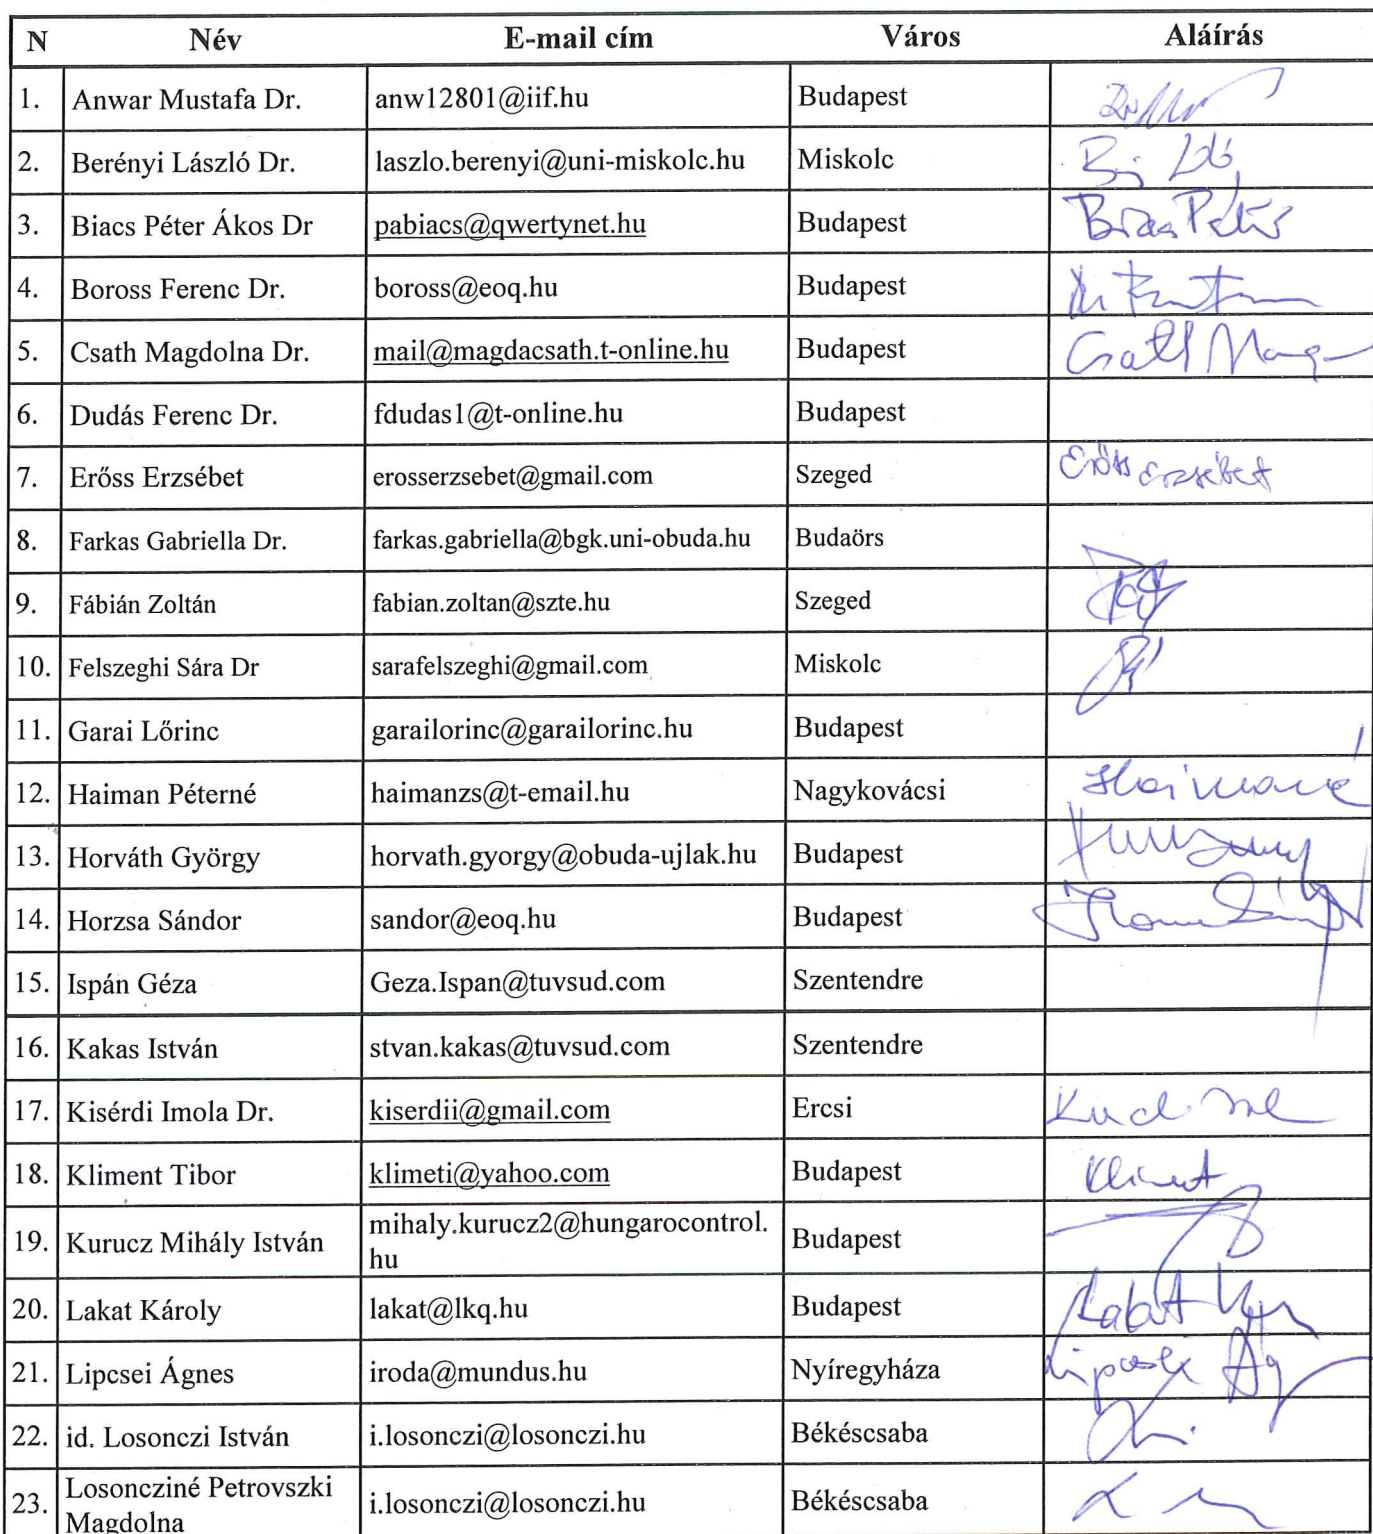 N Név E-mail cím Város Aláírás
1. Anwar Mustafa Dr. anw12801@iif.hu Budapest
2. Berényi László Dr. laszlo.berenyi@uni-miskolc.hu Miskolc
3. Biacs Péter Ákos Dr pabiacs@qwertynet.hu Budapest
4. Boross Ferenc Dr. boross@eoq.hu Budapest
5. Csath Magdolna Dr. mail@magdacsath.t-online.hu Budapest Csath
6. Dudás Ferenc Dr. fdudas1@t-online.hu Budapest
7. Erőss Erzsébet erosserzsebet@gmail.com Szeged Erőss Erzsébet
8. Farkas Gabriella Dr. farkas.gabriella@bgk.uni-obuda.hu Budaörs
9. Fábián Zoltán fabian.zoltan@szte.hu Szeged
10. Felszeghi Sára Dr sarafelszeghi@gmail.com Miskolc
11. Garai Lőrinc garailorinc@garailorinc.hu Budapest
12. Haiman Péterné haimanzs@t-email.hu Nagykovácsi
13. Horváth György horvath.gyorgy@obuda-ujlak.hu Budapest
14. Horzsa Sándor sandor@eoq.hu Budapest
15. Ispán Géza Geza.Ispan@tuvsud.com Szentendre
16. Kakas István stvan.kakas@tuvsud.com Szentendre
17. Kisérdi Imola Dr. kiserdii@gmail.com Ercsi
18. Kliment Tibor klimeti@yahoo.com Budapest
19. Kurucz Mihály István mihaly.kurucz2@hungarocontrol.
hu Budapest
20. Lakat Károly lakat@lkq.hu Budapest Lakat
21. Lipcsei Ágnes iroda@mundus.hu Nyíregyháza Lipcsei Ág
22. id. Losonczi István i.losonczi@losonczi.hu Békéscsaba
23. Losoncziné Petrovszki
Magdolna i.losonczi@losonczi.hu Békéscsaba